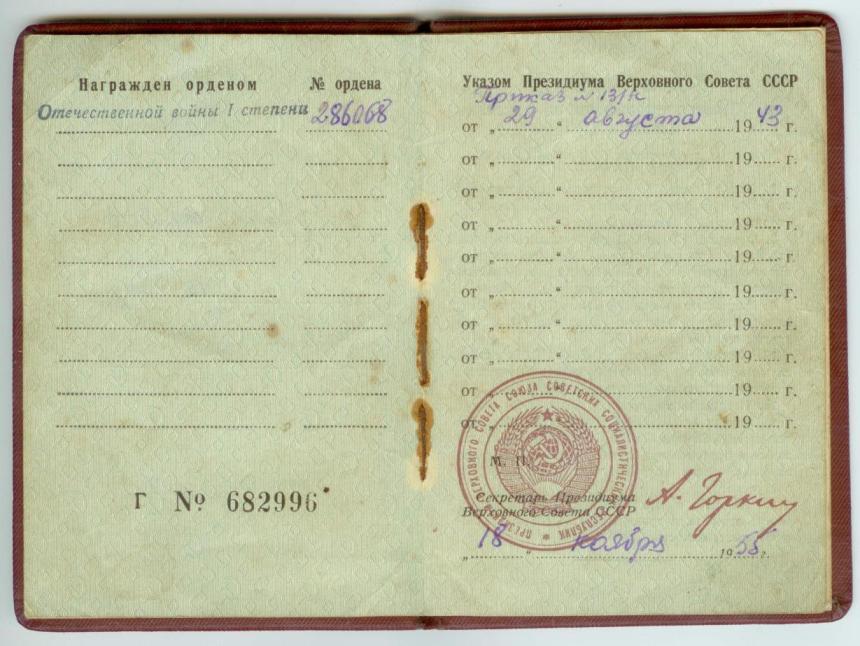 Награжден орденом № ордена
Отечественной войны I степени 286068
Г № 682996
Указом Президиума Верховного Совета СССР
Приказ № 13/н
от „ 29 “ августа 19 43 г.
от „ “ 19 г.
от „ “ 19 г.
от „ “ 19 г.
от „ “ 19 г.
от „ “ 19 г.
от „ “ 19 г.
от „ “ 19 г.
от „ “ 19 г.
от „ “ 19 г.
от „ 19 г.
ПРЕЗИДИУМ ВЕРХОВНОГО СОВЕТА СОЮЗА СОВЕТСКИХ СОЦИАЛИСТИЧЕСКИХ РЕСПУБЛИК
М. П.
Секретарь Президиума
Верховного Совета СССР
А. Горкин
„ 18 “ ноября 1955 г.